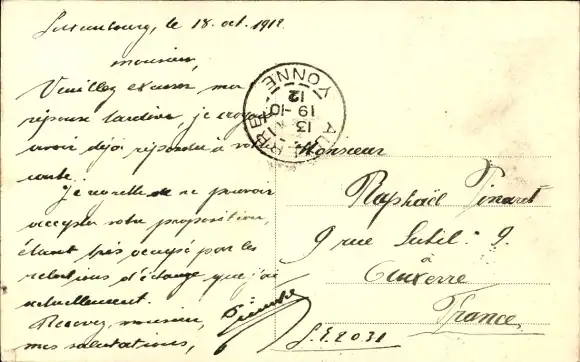 Luxembourg, le 18. oct. 1912.
monsieur,
Veuillez excuser ma
réponse tardive, je croyais
avoir déjà répondu à votre
carte.
Je regrette de ne pouvoir
accepter votre proposition,
étant très occupé par les
relations d'échange que j'ai
actuellement.
Recevez, monsieur,
mes salutations,
AUXERRE
YONNE
13
19-10
12
Monsieur
Raphaël
9 rue Subil. 9.
à
Auxerre
France